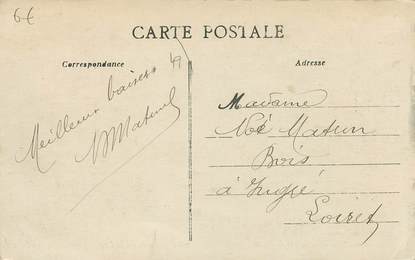 6€
CARTE POSTALE
Correspondance
Adresse
49
Meilleurs baisers
Madame
Noé
Bois
à Ingré
Loiret